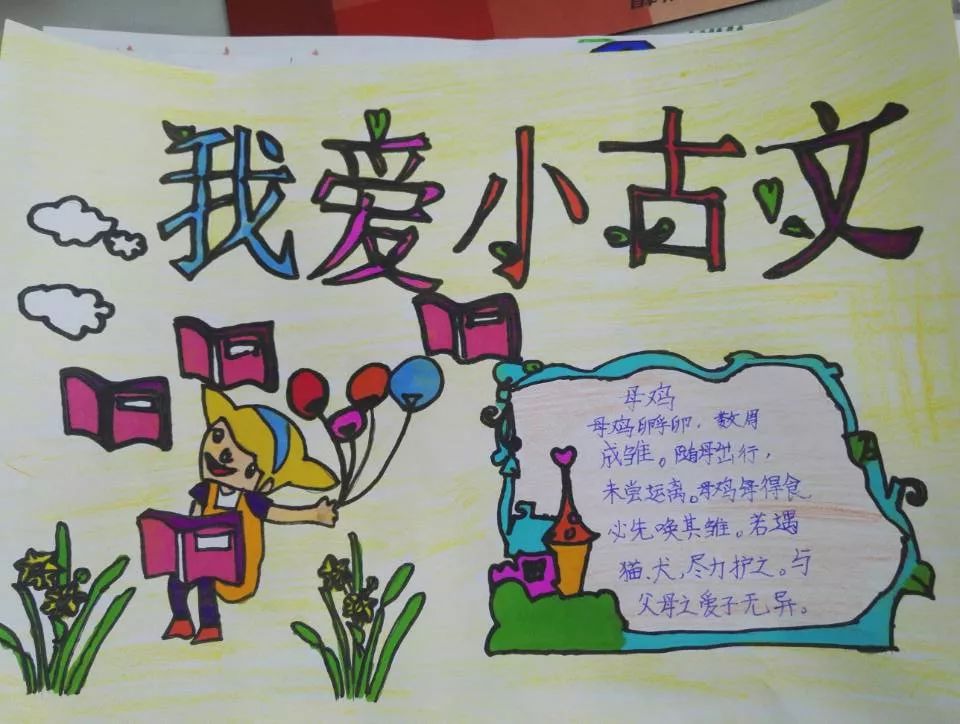 我爱小古文
母鸡
母鸡孵卵，数周
成雏。随母出行，
未尝远离。母鸡每得食
必先唤其雏。若遇
猫、犬，尽力护之。与
父母之爱子无异。